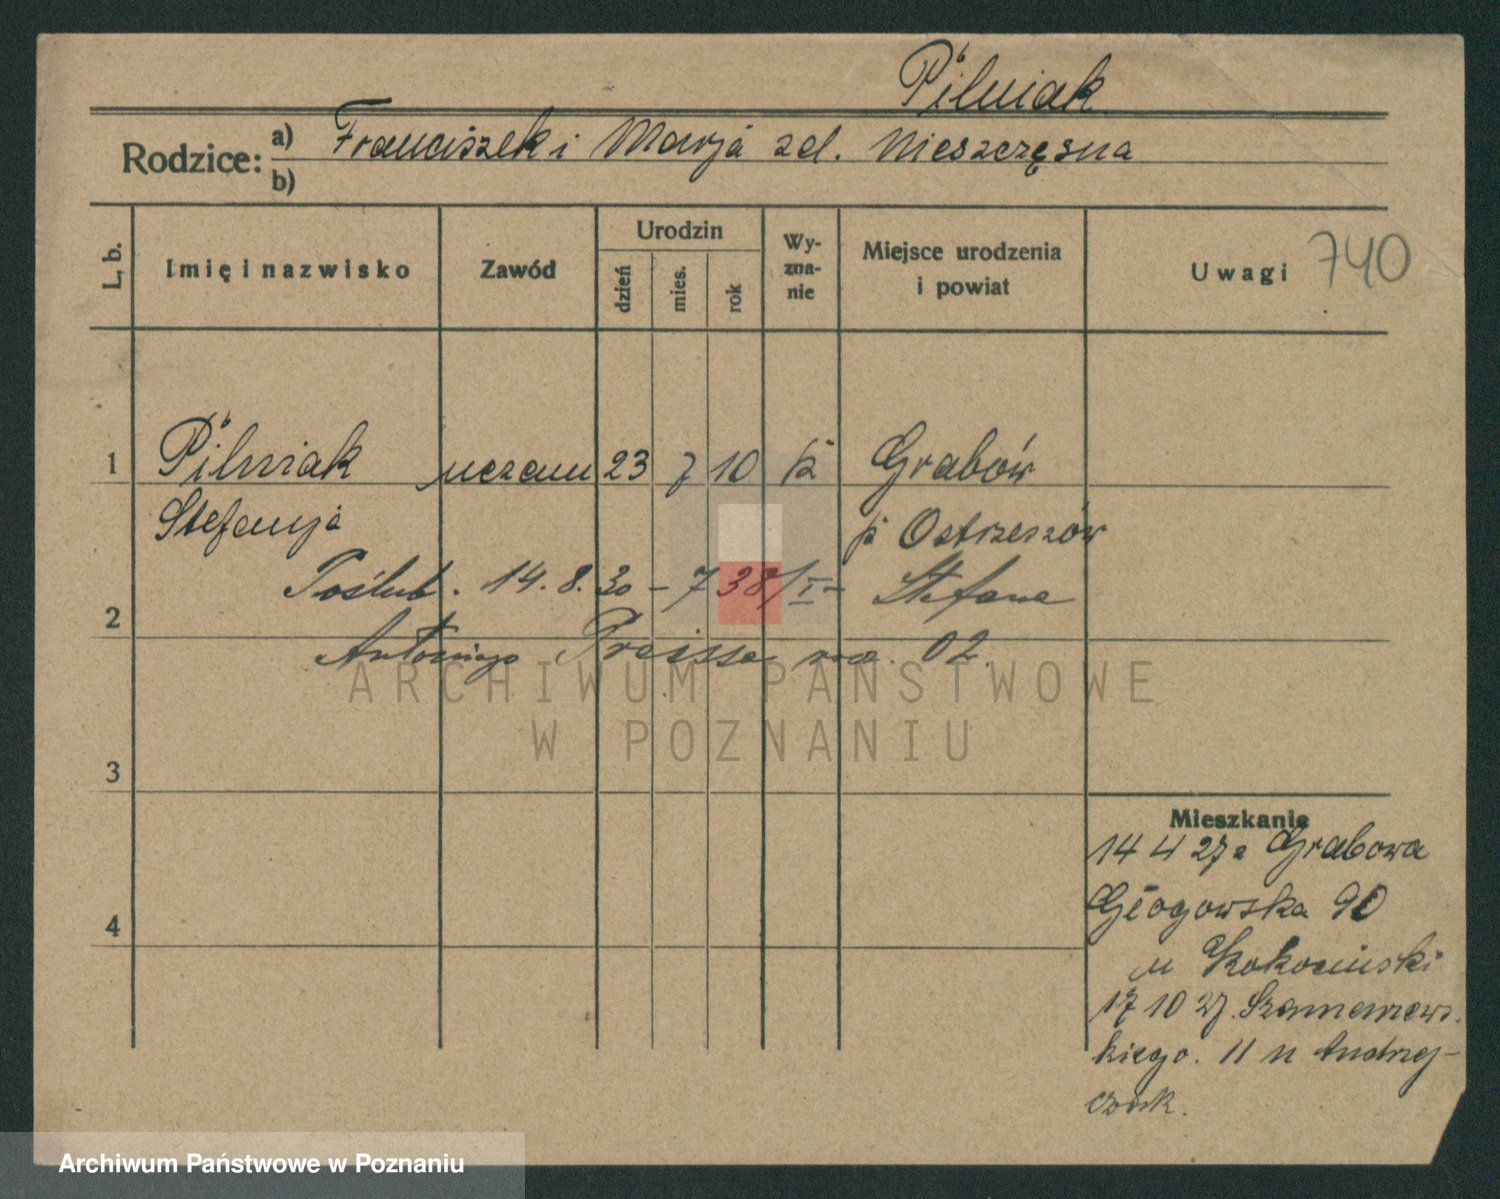 Pilniak
Rodzice:
a) Franciszek i Marja zd. Nieszczęsna
b)
L. b.
Imię i nazwisko
Zawód
Urodzin
dzień
mies.
rok
Wy-
zna-
nie
Miejsce urodzenia
i powiat
Uwagi
740
1 Pilniak uczenn 23 7 10 k Grabów
Stefanja p Ostrzeszów
Poślub. 14.8.30 – 738/I – Stefana
2
Antoniego Preissa ur. 02.
ARCHIWUM PAŃSTWOWE
W POZNANIU
3
Mieszkanie
14 4 27 z Grabowa
Głogowska 90
u Kokociński
4
17 10 27. Szamarzews-
kiego. 11 u Andrzej-
czak.
Archiwum Państwowe w Poznaniu